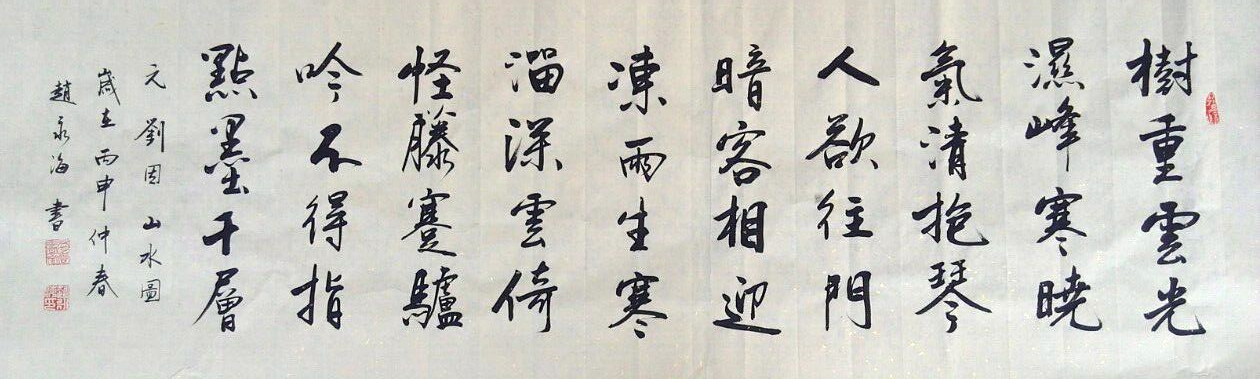 樹重雲光
濕峰寒曉
氣清抱琴
人欲往門
暗客相迎
凍雨生寒
溜深雲倚
怪藤蹇驢
吟不得指
點墨千層
元劉因山水圖
歲在丙申仲春
趙永海書